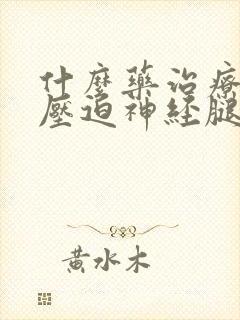 什麼藥治療
壓迫神經腿
黃水木